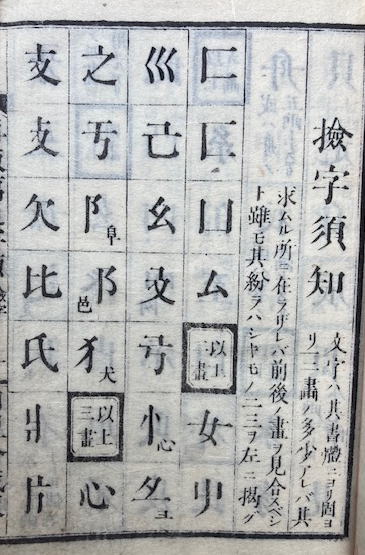 撿字須知
文字ハ其書軆ニヨリ固ヨ
リ一二畫ノ多少アレバ其
求ムル所ニ在ラザレバ前後ノ畫ヲ見合スベシ
ト雖モ其紛ラハシキモノ二三ヲ左ニ揭グ
匚匸凵厶以上二畫女屮
巛己幺忄心彑彐
之丂阝阜阝邑犭犬以上三畫心
支攴欠比氏爿片